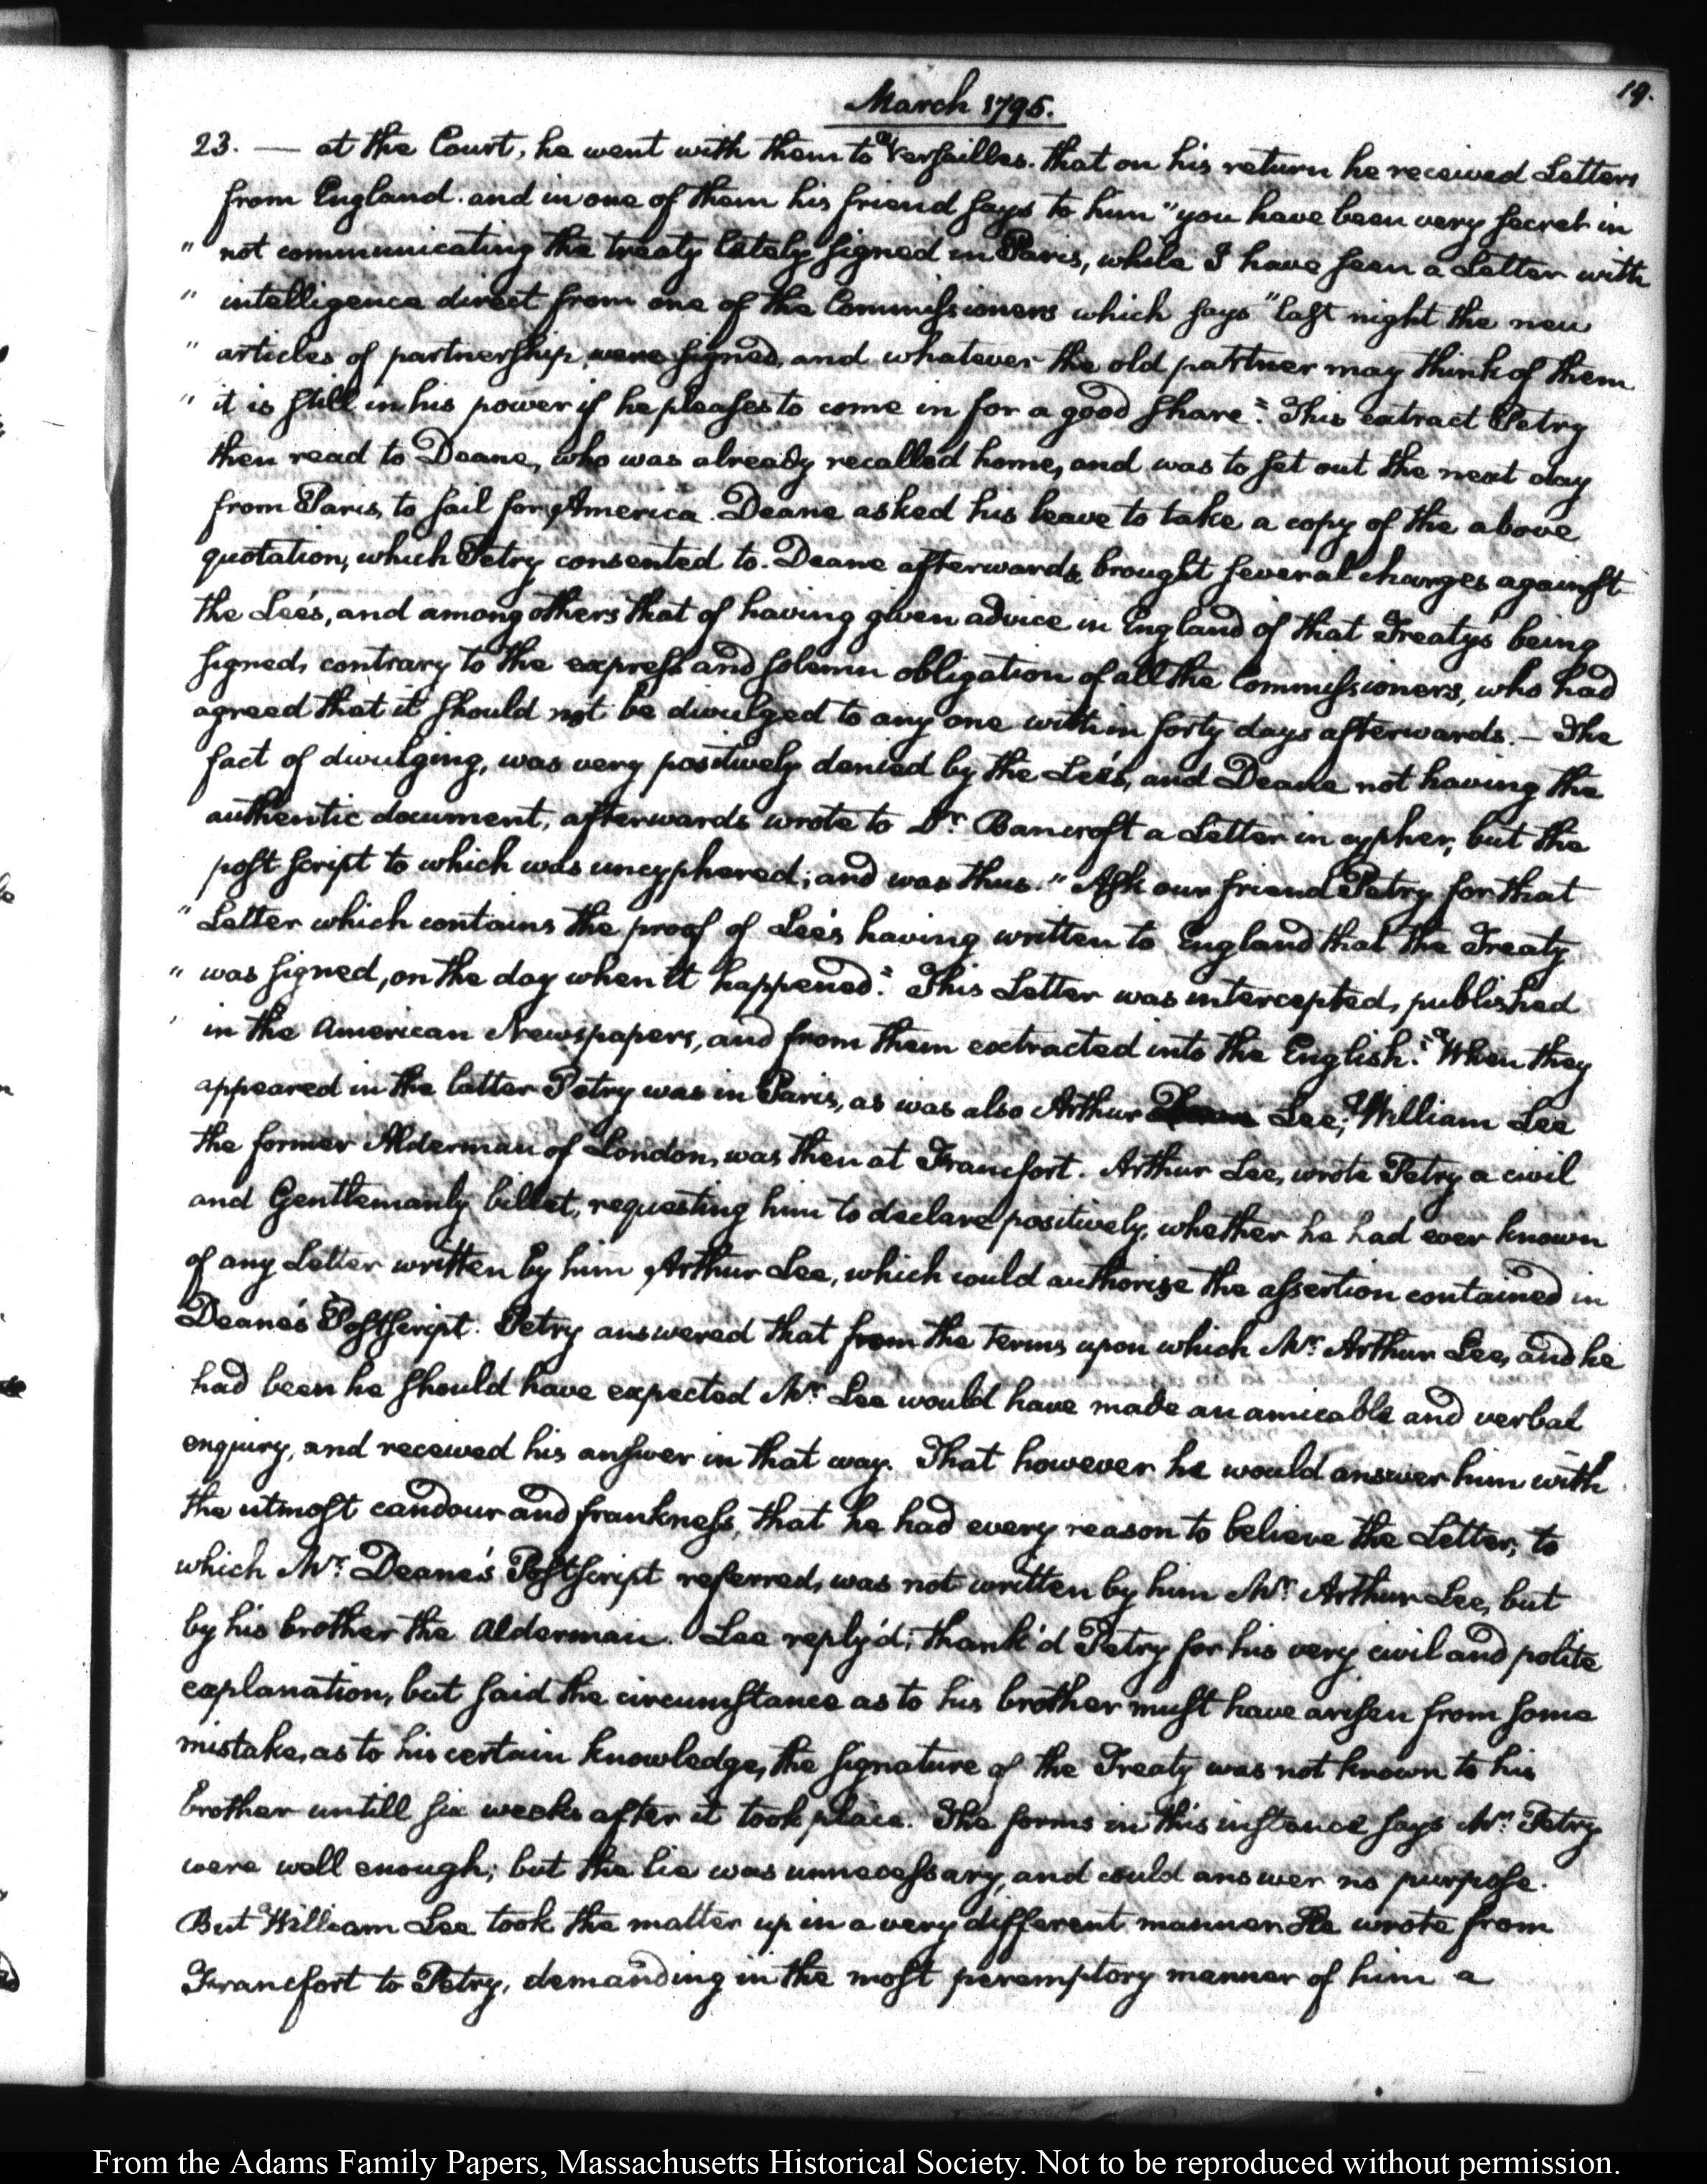 19.
March 1795.
23. — at the Court, he went with them to Versailles. that on his return he received Letters
from England. and in one of them his friend says to him "you have been very secret in
" not communicating the treaty lately signed in Paris, while I have seen a Letter with
" intelligence direct from one of the Commissioners which says "last night the new
" articles of partnership, were signed, and whatever the old partner may think of them
" it is still in his power if he pleases to come in for a good share." This extract Petry
then read to Deane, who was already recalled home, and was to set out the next day
from Paris, to sail for America. Deane asked his leave to take a copy of the above
quotation, which Petry consented to. Deane afterwards, brought several charges against
the Lee's, and among others that of having given advice in England of that Treaty's being
signed, contrary to the express and solemn obligation of all the Commissioners, who had
agreed that it should not be divulged to any one within forty days afterwards. — The
fact of divulging, was very positively denied by the Lee's, and Deane not having the
authentic document, afterwards wrote to Dr. Bancroft a Letter in cypher, but the
post script to which was uncyphered; and was thus. " Ask our friend Petry for that
" Letter which contains the proof of Lee's having written to England that the Treaty
" was signed, on the day when it happened." This Letter was intercepted, published
' in the American Newspapers, and from them extracted into the English." When they
appeared in the latter Petry was in Paris, as was also Arthur Lee; William Lee
the former Alderman of London, was then at Francfort. Arthur Lee, wrote Petry a civil
and Gentlemanly billet, requesting him to declare positively, whether he had ever known
of any Letter written by him Arthur Lee, which could authorise the assertion contained in
Deane's Postscript. Petry answered that from the terms upon which Mr. Arthur Lee, and he
had been he should have expected Mr. Lee would have made an amicable and verbal
enquiry, and received his answer in that way. That however he would answer him with
the utmost candour and frankness, that he had every reason to believe the Letter, to
which Mr. Deane's Postscript referred, was not written by him Mr. Arthur Lee, but
by his brother the Alderman. Lee reply'd; thank'd Petry for his very civil and polite
explanation, but said the circumstance as to his brother must have arisen from some
mistake, as to his certain knowledge, the signature of the Treaty was not known to his
brother untill six weeks after it took place. The forms in this instance says Mr. Petry
were well enough; but the lie was unnecessary, and could answer no purpose.
But William Lee took the matter up in a very different manner. He wrote from
Francfort to Petry, demanding in the most peremptory manner of him a
From the Adams Family Papers, Massachusetts Historical Society. Not to be reproduced without permission.